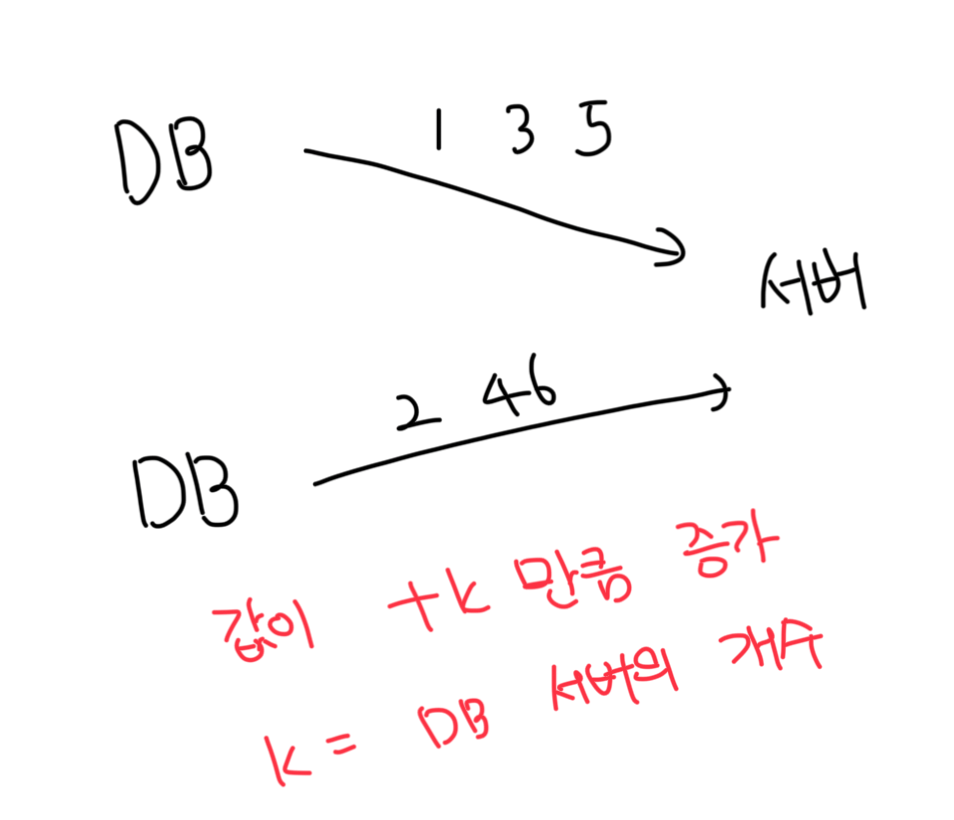 DB
1 3 5
서버
DB
2 4 6
값이 +k 만큼 증가
k = DB 서버의 개수